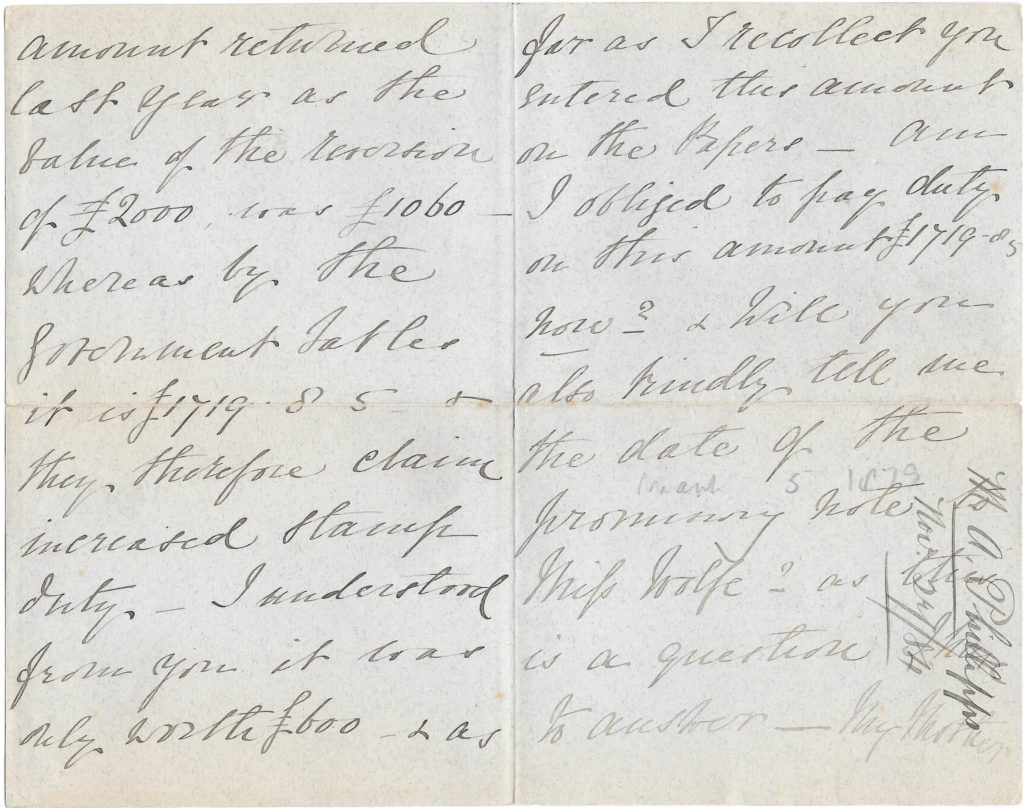 amount returned
last year as the
value of the reversion
of £2000, was £1060 —
whereas by the
Government Tables
it is £1719. 8 5 - &
they therefore claim
increased stamp
duty — I understood
from you it was
only worth £600 - & as
far as I recollect you
entered this amount
on the Papers — am
I obliged to pay duty
on this amount £1719-8 5
now? & will you
also kindly tell me
the date of the
March 5 1879
promissory note
Miss Wolfe? as this
is a question
to answer — My Mother
A. Phillipps
Nov. 24/84